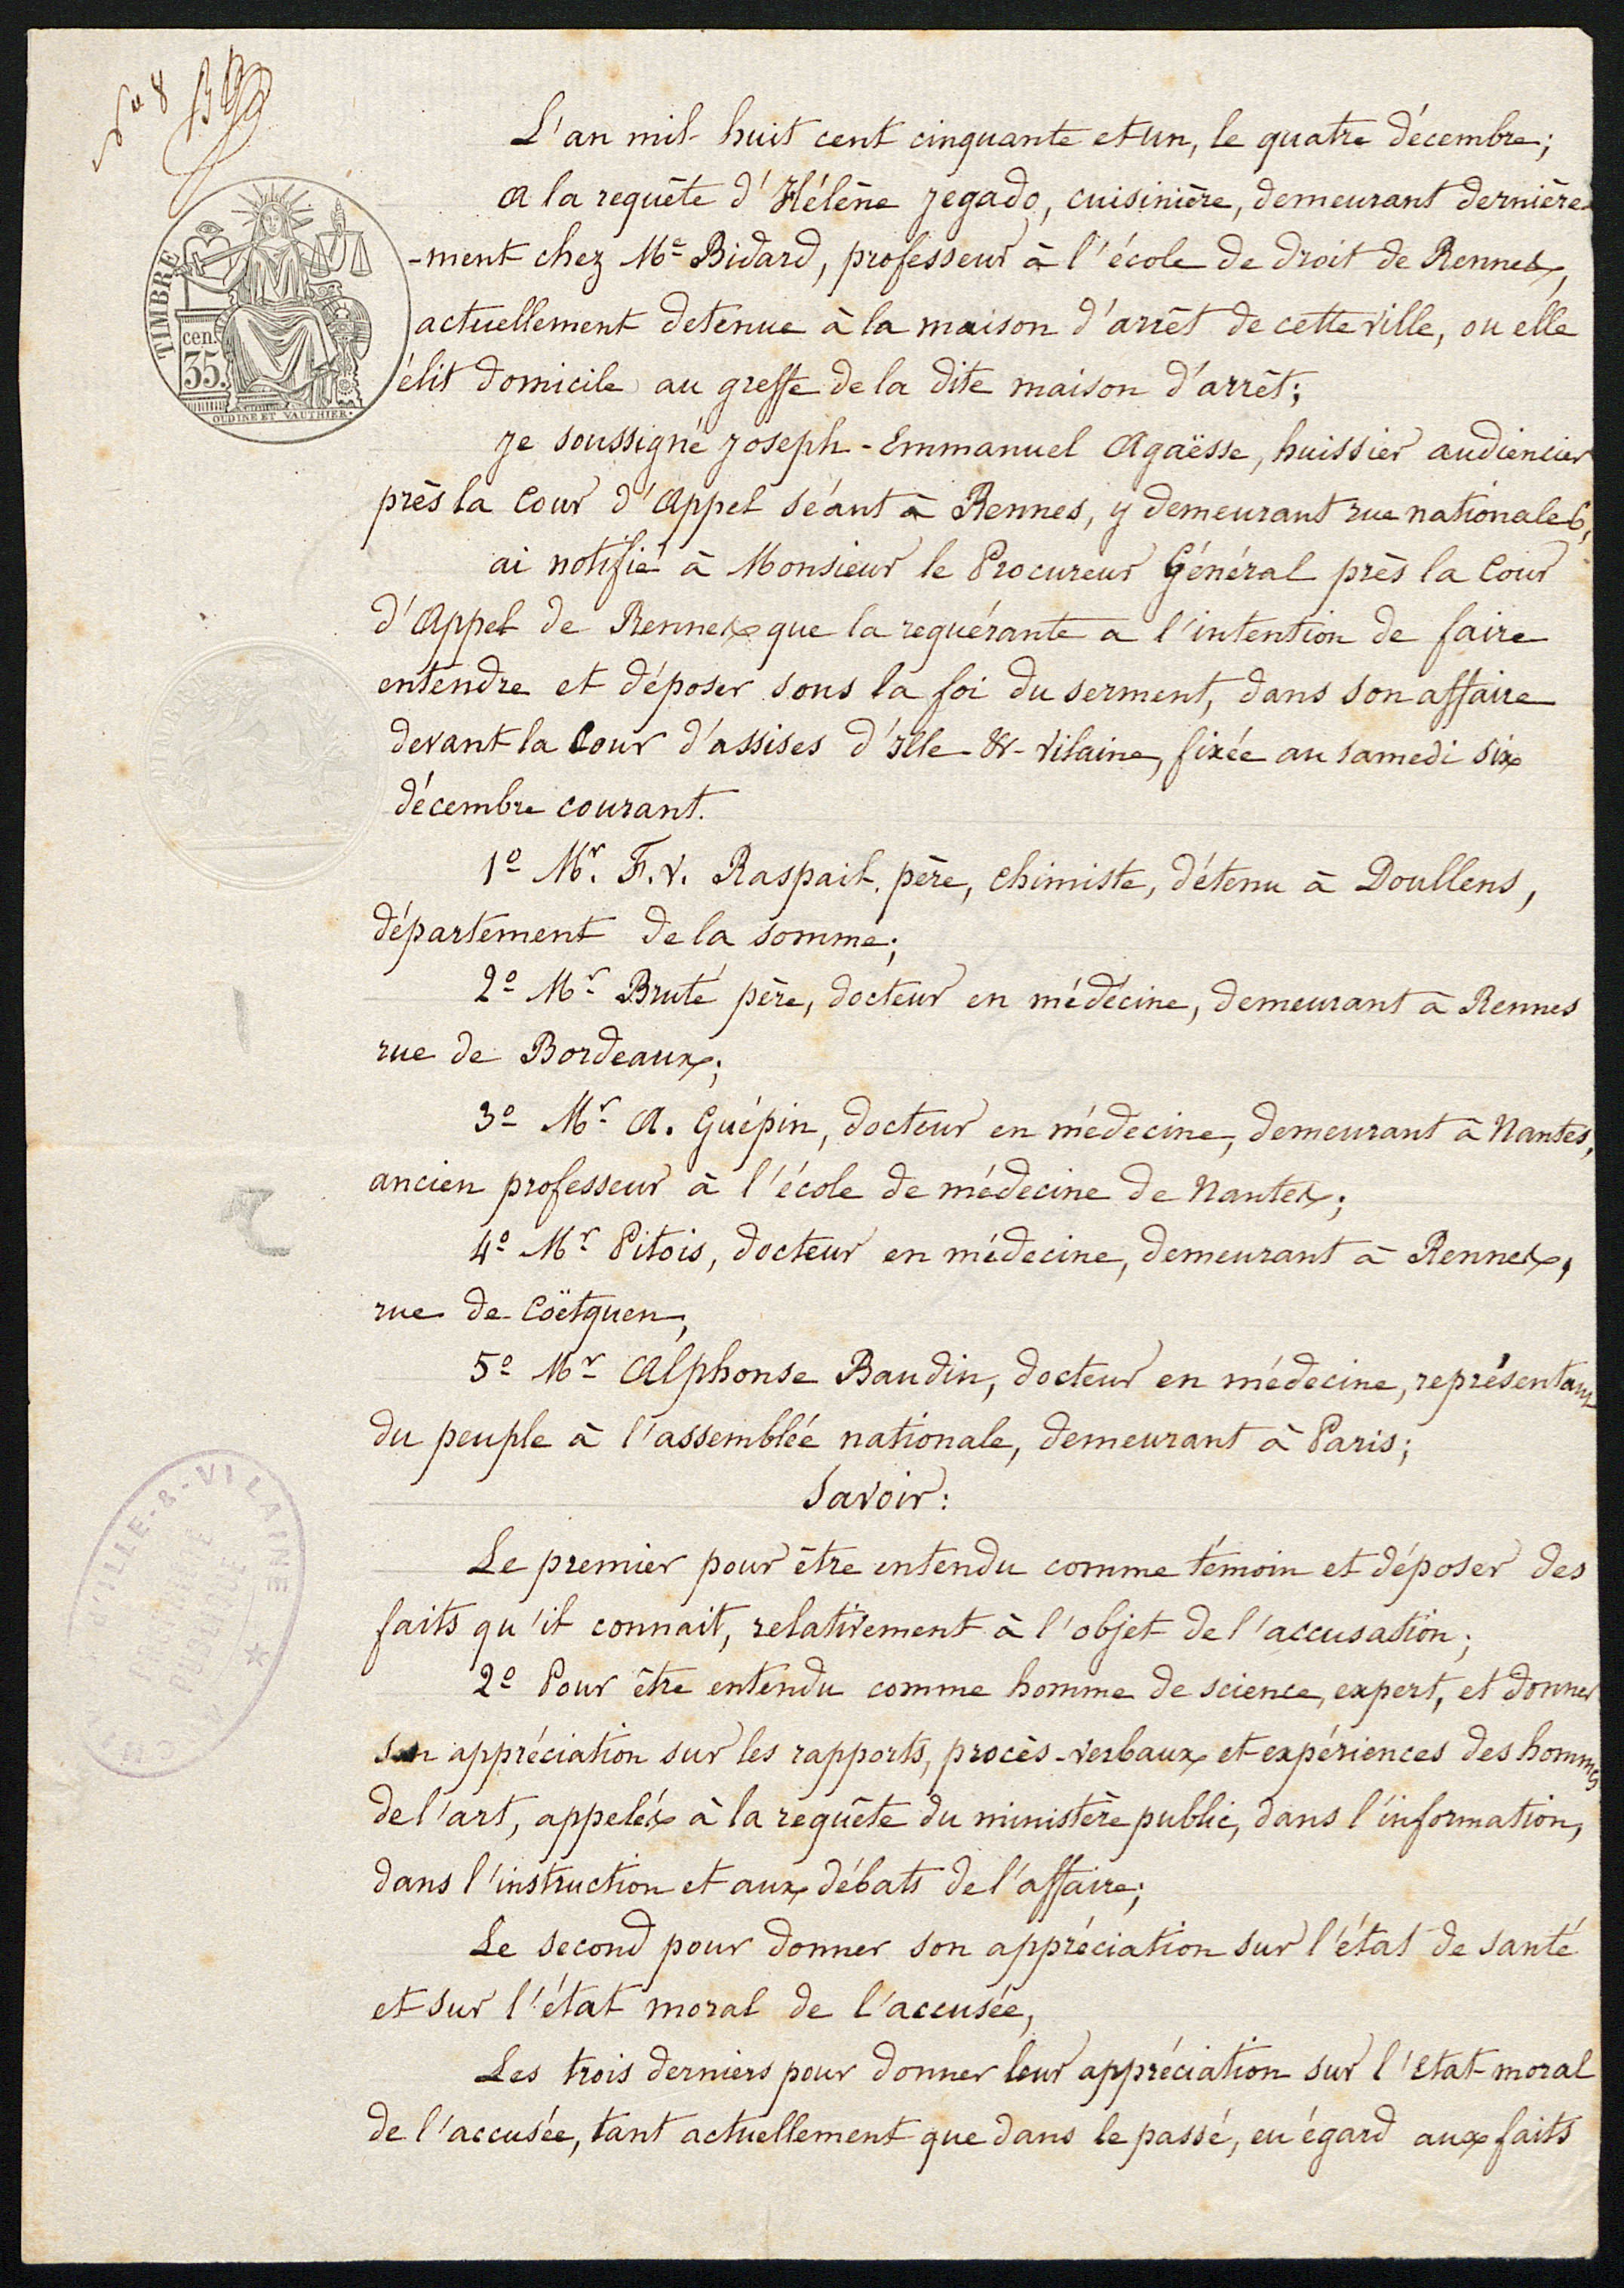 Nº 8
TIMBRE
cen.
35.
OUDINE ET VAUTHIER.
L'an mil huit cent cinquante et un, le quatre décembre;
A la requête d'Hélène Jegado, cuisinière, demeurant dernière-
-ment chez Me Bidard, professeur à l'école de droit de Rennes,
actuellement detenue à la maison d'arrêt de cette ville, ou elle
élit domicile au greffe de la dite maison d'arrêt;
Je soussigné Joseph-Emmanuel Agaësse, huissier audiencier
près la Cour d'Appel séant à Rennes, y demeurant rue nationale 6,
ai notifié à Monsieur le Procureur Général près la Cour
d'Appel de Rennes que la requérante a l'intention de faire
entendre et déposer sous la foi du serment, dans son affaire
devant la Cour d'assises d'Ille-&-Vilaine, fixée au samedi six
décembre courant.
1º Mr. F.V. Raspail père, chimiste, détenu à Doullens,
département de la somme;
2º Mr Bruté père, docteur en médécine, demeurant à Rennes
rue de Bordeaux;
3º Mr A. Guépin, docteur en médecine, demeurant à Nantes,
ancien professeur à l'école de médecine de Nantes;
4º Mr Pitois, docteur en médecine, demeurant à Rennes,
rue de Coëtquen,
5º Mr Alphonse Baudin, docteur en médecine, représentant
du peuple à l'assemblée nationale, demeurant à Paris;
Savoir:
Le premier pour être entendu comme témoin et déposer des
faits qu'il connait, relativement à l'objet de l'accusation;
2º Pour être entendu comme homme de science, expert, et donner
son appréciation sur les rapports, procès-verbaux et expériences des hommes
de l'art, appelés à la requête du ministère public, dans l'information,
dans l'instruction et aux débats de l'affaire;
Le second pour donner son appréciation sur l'état de santé
et sur l'état moral de l'accusée,
Les trois derniers pour donner leur appréciation sur l'état moral
de l'accusée, tant actuellement que dans le passé, eu égard aux faits
D'ILLE-&-VILAINE